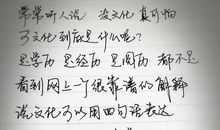 常常听人说 没文化真可怕
可文化到底是什么呢?
是学历 是经历 是阅历 都不是
看到网上一个很靠谱的解释
说文化可以用四句话表达